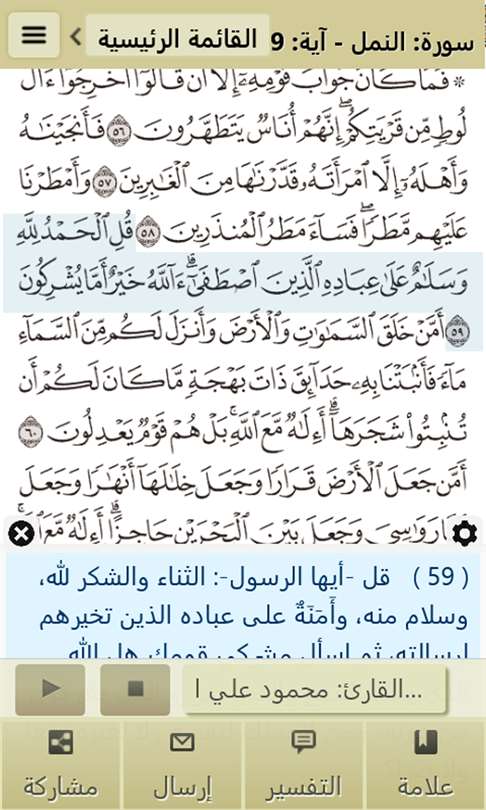 سورة: النمل - آية: 9
القائمة الرئيسية
۞ فَمَا كَانَ جَوَابَ قَوْمِهِۦٓ إِلَّآ أَن قَالُوٓا۟ أَخْرِجُوٓا۟ ءَالَ
لُوطٍ مِّن قَرْيَتِكُمْ ۖ إِنَّهُمْ أُنَاسٌ يَتَطَهَّرُونَ ٥٦ فَأَنجَيْنَـٰهُ
وَأَهْلَهُۥٓ إِلَّا ٱمْرَأَتَهُۥ قَدَّرْنَـٰهَا مِنَ ٱلْغَـٰبِرِينَ ٥٧ وَأَمْطَرْنَا
عَلَيْهِم مَّطَرًا ۖ فَسَآءَ مَطَرُ ٱلْمُنذَرِينَ ٥٨ قُلِ ٱلْحَمْدُ لِلَّهِ
وَسَلَـٰمٌ عَلَىٰ عِبَادِهِ ٱلَّذِينَ ٱصْطَفَىٰٓ ۗ ءَآللَّهُ خَيْرٌ أَمَّا يُشْرِكُونَ
٥٩ أَمَّنْ خَلَقَ ٱلسَّمَـٰوَٰتِ وَٱلْأَرْضَ وَأَنزَلَ لَكُم مِّنَ ٱلسَّمَآءِ
مَآءً فَأَنۢبَتْنَا بِهِۦ حَدَآئِقَ ذَاتَ بَهْجَةٍ مَّا كَانَ لَكُمْ أَن
تُنۢبِتُوا۟ شَجَرَهَآ ۗ أَءِلَـٰهٌ مَّعَ ٱللَّهِ ۚ بَلْ هُمْ قَوْمٌ يَعْدِلُونَ ٦٠
أَمَّن جَعَلَ ٱلْأَرْضَ قَرَارًا وَجَعَلَ خِلَـٰلَهَآ أَنْهَـٰرًا وَجَعَلَ
لَهَا رَوَٰسِىَ وَجَعَلَ بَيْنَ ٱلْبَحْرَيْنِ حَاجِزًا ۗ أَءِلَـٰهٌ مَّعَ
( 59 ) قل -أيها الرسول-: الثناء والشكر لله،
وسلام منه، وأَمَنَةٌ على عباده الذين تخيرهم
لرسالته، ثم اسأل مشركي قومك هل الله
القارئ: محمود علي ا...
علامة
التفسير
إرسال
مشاركة